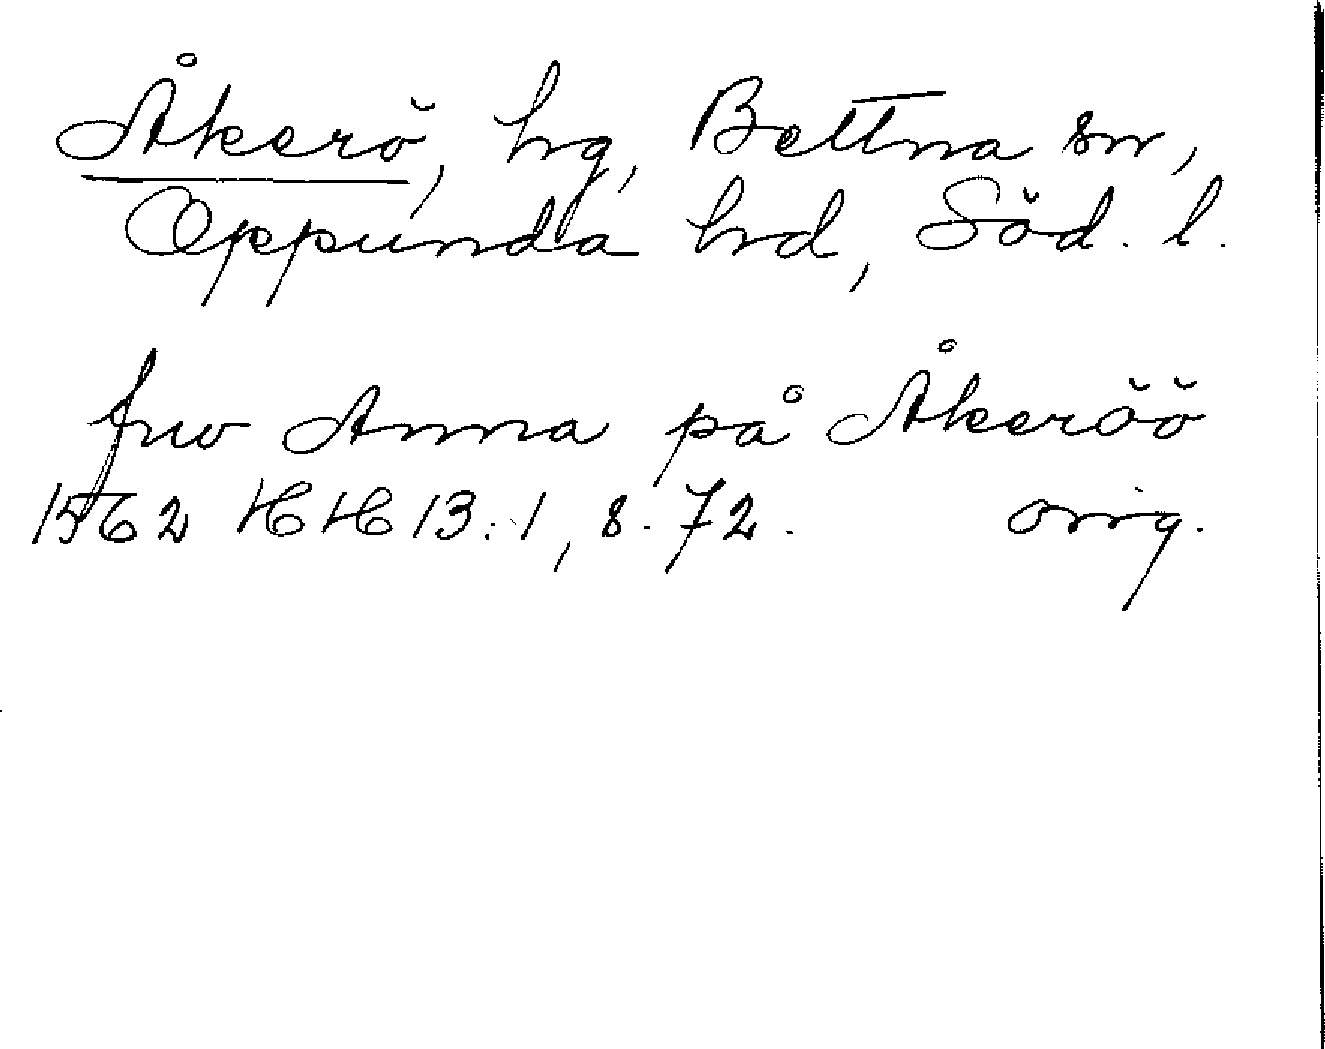 Åkerö, hg, Bettna sn,
Oppunda hd, Söd. l.
fru Anna på Åkeröö
1562 HH 13:1, s. 72. orig.